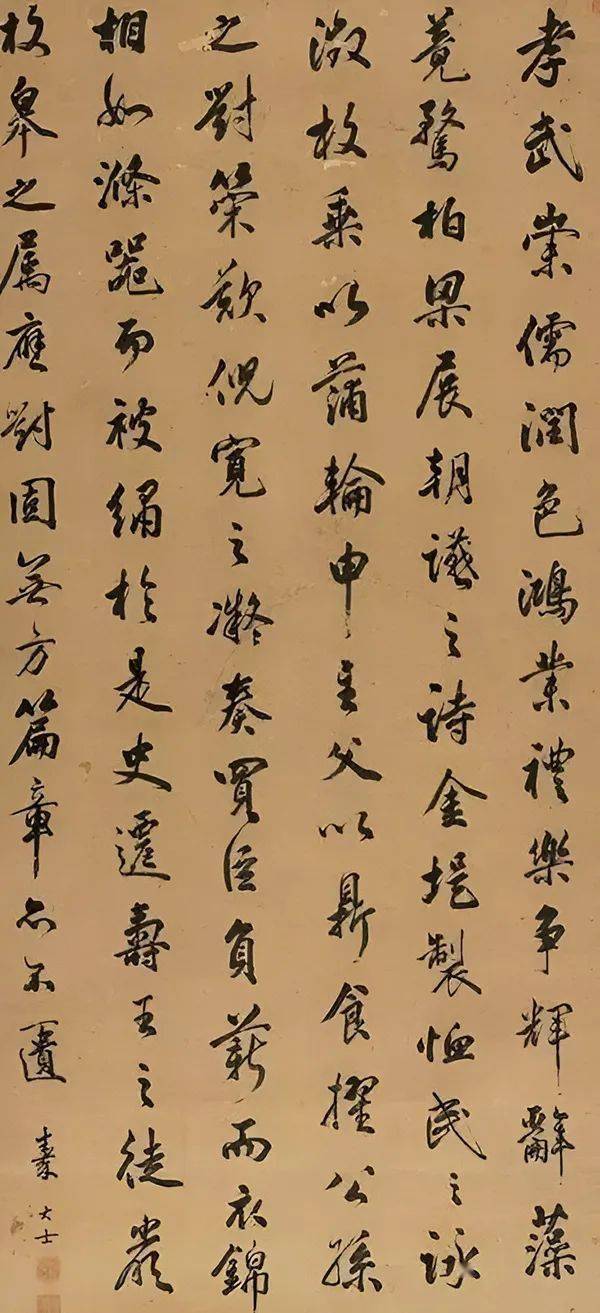 孝武崇儒潤色鴻業禮樂争輝辭藻
竟騖柏梁展朝讌之詩金堤製恤民之詠
徵枚乘以蒲輪申主父以鼎食擢公孫
之對策歎倪寬之凝奏買臣負薪而衣錦
相如滌器而被繡於是史遷壽王之徒嚴
枚皋之屬應對固無方篇章亦不遺
秦大士